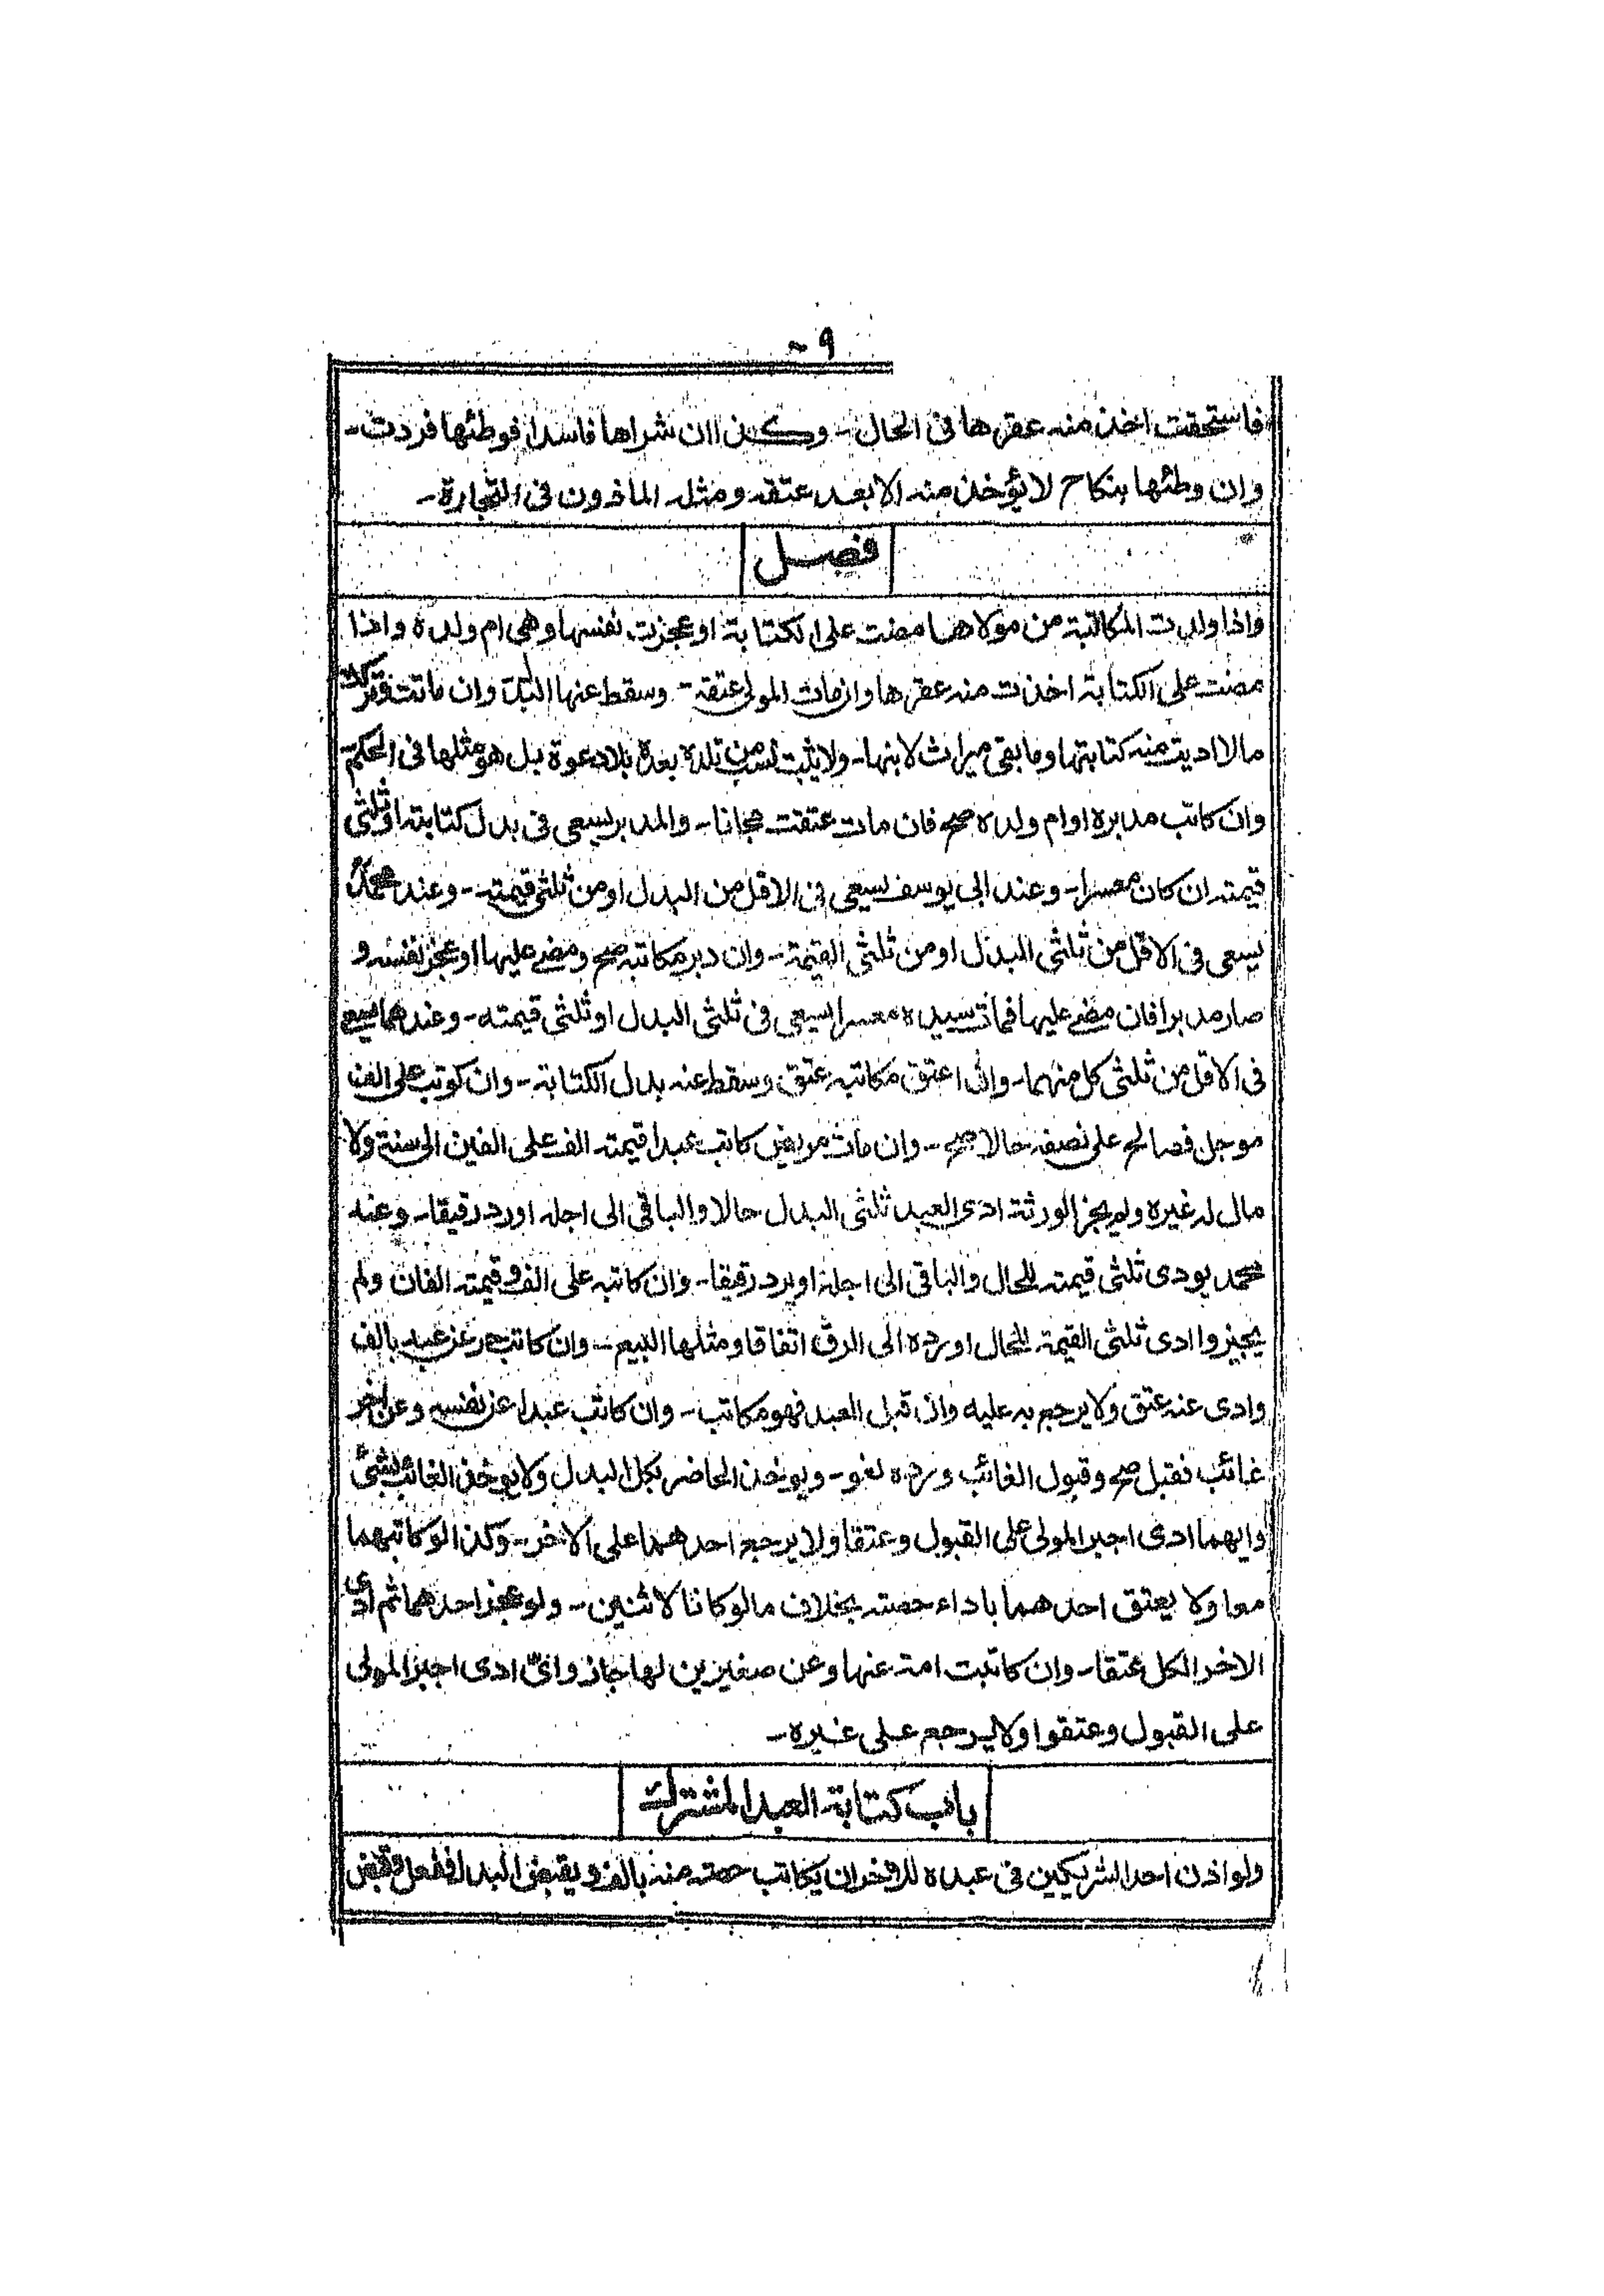 ٩ ~
فاستحقت اخذ منه عقرها فى الحال - وكذا ان شراها فاسدا فوطئها فردت -
وان وطئها بنكاح لا يؤخذ منه الا بعد عتقه ومثله الماذون فى التجارة -
فصل
واذا ولدت المكاتبة من مولاها مضت على الكتابة او عجزت نفسها وهى ام ولده واذا
مضت على الكتابة اخذت منه عقرها وان مات المولى عتقت - وسقط عنها البدل وان ماتت وتركت
مالا اديت منه كتابتها وما بقى ميراث لابنها - ولا يثبت نسب من تلده بعده بلا دعوة بل هو مثلها فى الحكم
وان كاتب مدبره او ام ولده صح فان مات عتقت مجانا - والمدبر يسعى فى بدل كتابته او ثلثى
قيمته ان كان معسرا - وعند ابى يوسف يسعى فى الاقل من البدل او من ثلثى قيمته - وعند محمد
يسعى فى الاقل من ثلثى البدل او من ثلثى القيمة - وان دبر مكاتبه صح ومضى عليها او عجز نفسه و
صار مدبرا فان مضى عليها فمات سيده معسرا يسعى فى ثلثى البدل او ثلثى قيمته - وعندهما يسعى
فى الاقل من ثلثى كل منهما - وان اعتق مكاتبه عتق وسقط عنه بدل الكتابة - وان كوتب على الف
موجل فصالح على نصفه حالا صح - وان مات مريض كاتب عبدا قيمته الف على الفين الى سنة ولا
مال له غيره ولم يجز الورثة ادى العبد ثلثى البدل حالا والباقى الى اجله او رد رقيقا - وعند
محمد يودى ثلثى قيمته للحال والباقى الى اجله او يرد رقيقا - وان كاتبه على الف وقيمته الفان ولم
يجيزوا ادى ثلثى القيمة للحال او رده الى الرق اتفاقا ومثلها البيع - وان كاتب حر عن عبد بالف
وادى عنه عتق ولا يرجع به عليه وان قبل العبد فهو مكاتب - وان كاتب عبدا عن نفسه وعن اخر
غائب فقبل صح وقبول الغائب ورده لغو - ويوخذ الحاضر بكل البدل ولا يوخذ الغائب بشئ
وايهما ادى اجبر المولى على القبول وعتقا ولا يرجع احدهما على الاخر - وكذا لو كاتبهما
معا ولا يعتق احدهما باداء حصته بخلاف ما لو كانا لاثنين - ولو عجز احدهما ثم ادى
الاخر الكل عتقا - وان كاتبت امة عنها وعن صغيرين لها جاز واىّ ادى اجبر المولى
على القبول وعتقوا ولا يرجع على غيره -
باب كتابة العبد المشترك
ولو اذن احد الشريكين فى عبده للاخر ان يكاتب حصته منه بالف ويقبض البدل ففعل وقبض